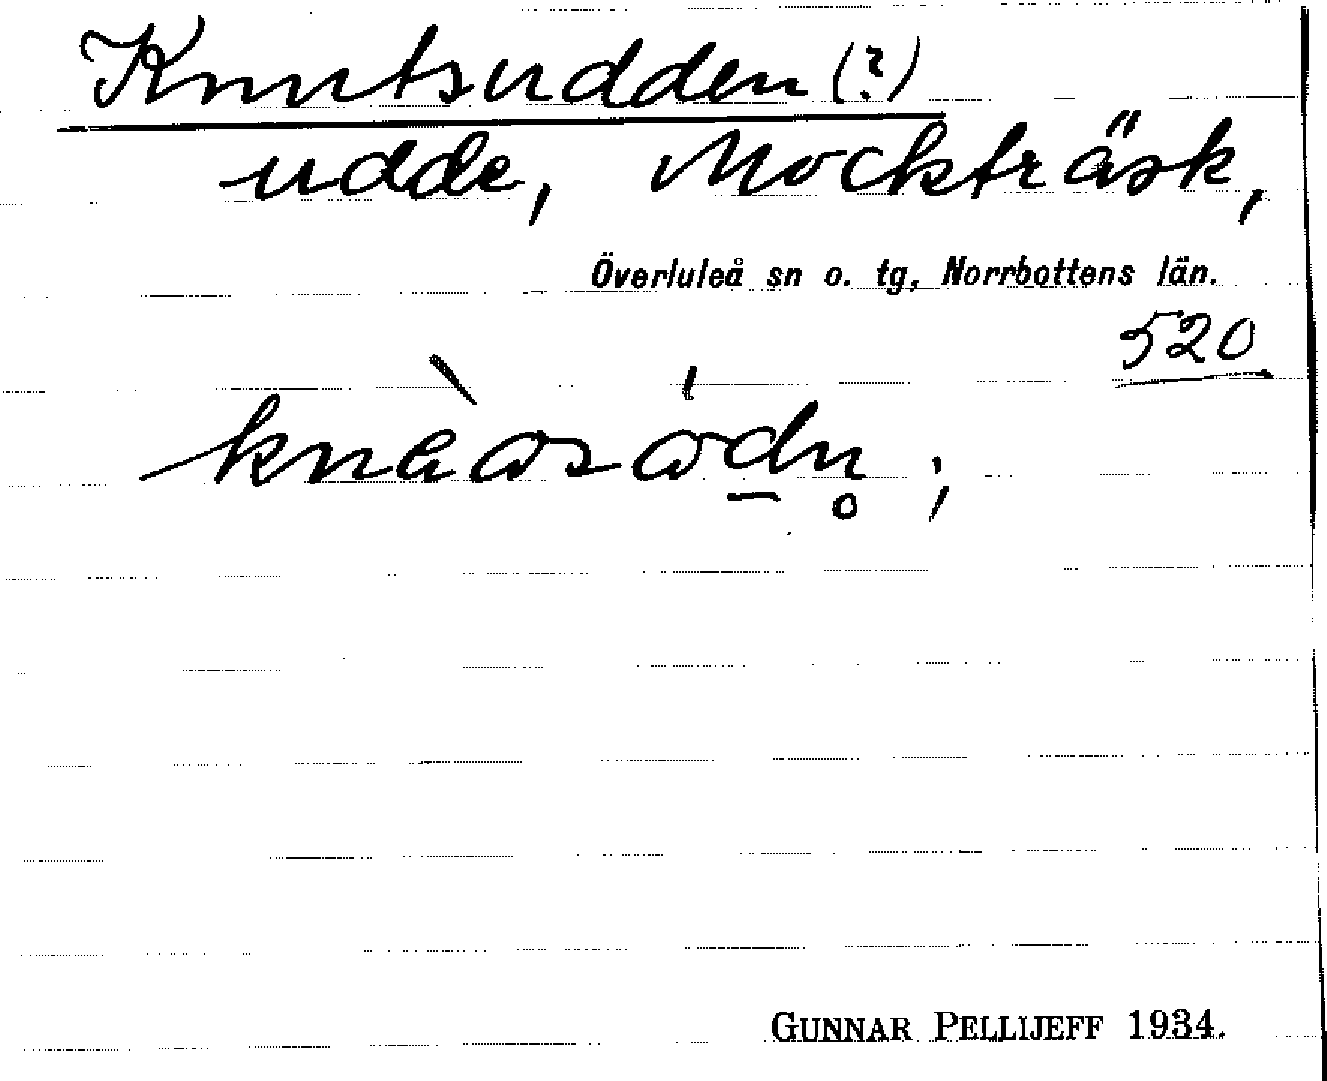 Knutsudden (?)
udde, Mockträsk,
Överluleå sn o. tg, Norrbottens län.
520
GUNNAR PELLIJEFF 1934.